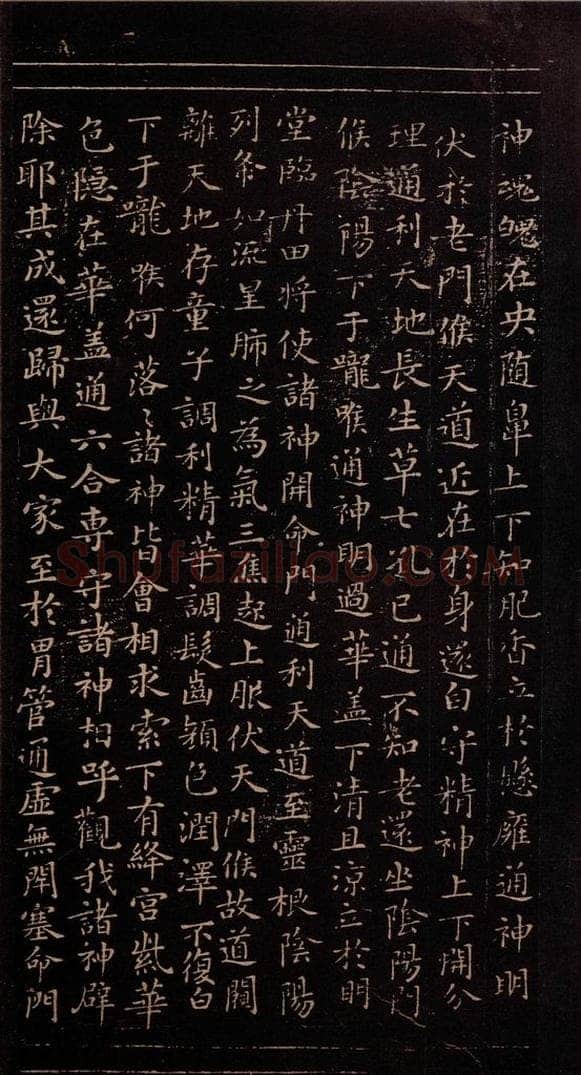 神魂魄在央随鼻上下知肥香立於懸雍通神明
伏於老門候天道近在於身還自守精神上下開分
理通利天地長生草七孔已通不知老還坐陰陽門
候陰陽下于嚨喉通神明過華盖下清且涼立於明
堂臨丹田将使諸神開命門通利天道至靈根陰陽
列布如流星肺之為氣三焦起上服伏天門候故道闚
離天地存童子調利精華調髮齒顔色潤澤不復白
下于嚨喉何落〻諸神皆會相求索下有絳宮紫華
色隠在華盖通六合専守諸神相呼觀我諸神辟
除耶其成還歸與大家至於胃管通虛無閇塞命門
Shufaziliao.COM